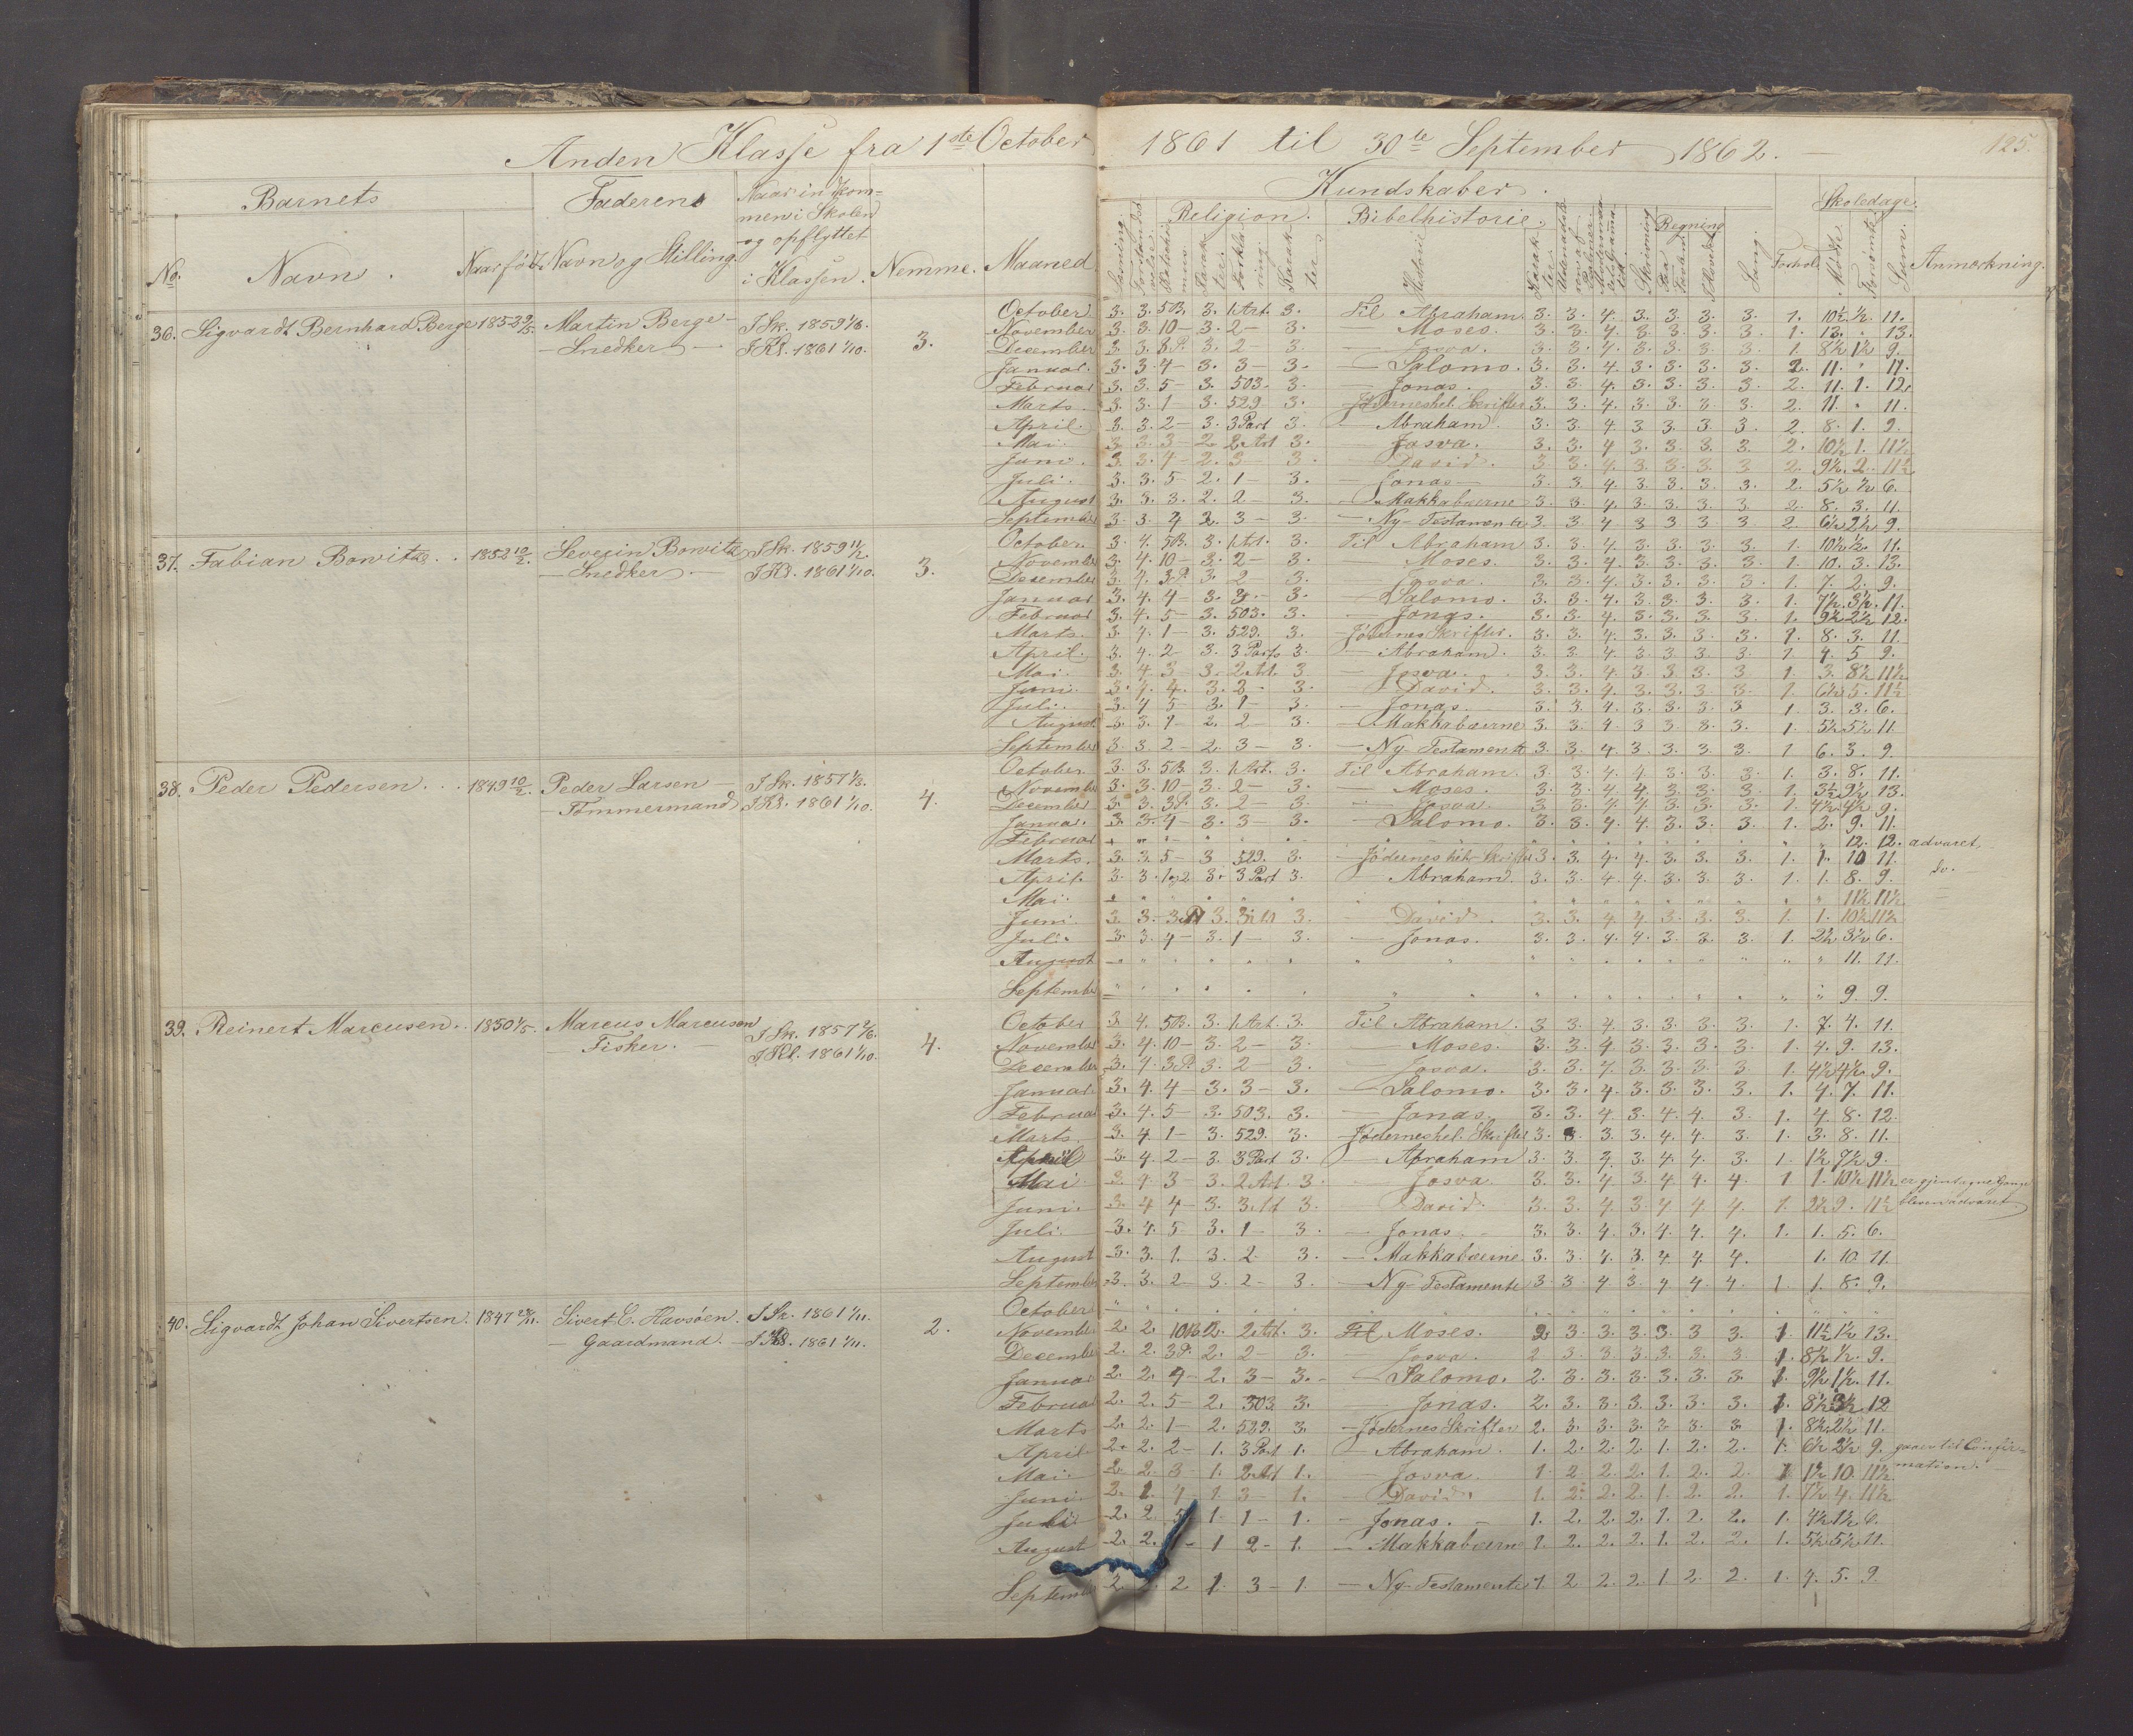 Anden Klasse fra 1ste October 1861 til 30te September 1862.
125.
Barnets Faderens Naar indkom- Kundskaber. Skoledage.
men i Skolen Religion. Bibelhistorie. Regning
og opflyttet
No. Navn. Naar født. Navn og Stilling. i Klassen. Nemme. Maaned. Sang. Forhold Mødt. Forsømt. Sum. Anmærkning.
36. Sigvardt Bernhard Berge Martin Berge I Sk. 1859 October 3. 3. 5B. 3. 1 Art. 3. Til Abraham. 3. 3. 4. 3. 3. 3. 3. 1. 10½. ½. 11.
– Snedker – I Kl. 1861 1/10. 3. November 3. 3. 10 – 3. 2 – 3. – Moses. 3. 3. 4. 3. 3. 3. 3. 1. 13. " 13.
December 3. 3. 3P. 3. 2 – 3. – Josva. 3. 3. 4. 3. 3. 3. 3. 1. 8½ ½ 9.
Januar. 3. 3. 4 – 3. 3 – 3. – Salomo. 3. 3. 4. 3. 3. 3. 3. 2. 11. " 11.
Februar 3. 3. 5 – 3. 503. 3. – Jonas. 3. 3. 4. 3. 3. 3. 3. 2. 11. 1. 12.
Marts. 3. 3. 1 – 3. 529 3. – Jødernes hel. Skrifter 3. 3. 4. 3. 3. 3. 3. 2. 11. " 11.
April. 3. 3. 2 – 3. 3 Part 3. – Abraham. 3. 3. 4. 3. 3. 3. 3. 2. 8. 1. 9.
Mai. 3. 3. 3 – 2. 2 Art 3. – Josva. 3. 3. 4. 3. 3. 3. 3. 2. 10½ 1. 11½
Juni. 3. 3. 4 – 2. 3 – 3. – David. 3. 3. 4. 3. 3. 3. 3 2. 9½. 2. 11½
Juli. 3. 3. 5 – 2. 1 – 3. – Jonas – 3. 3. 4. 3. 3. 3. 3. 2. 5½ ½ 6.
August 3. 3. 3. 2. 2 – 3. – Makkabæerne 3. 3. 4. 3. 3. 3. 3. 2. 8. 3. 11.
September 3. 3. 4 2. 3 – 3. – Ny-Testamente 3. 3. 4 3 3 3 3 2. 6½ 2½ 9.
37. Fabian Bowitz. 1852 10/2. Severin Bowitz I Sk. 1859 October. 3. 4. 5B. 3. 1 Art. 3. Til Abraham 3. 3. 4. 3. 3. 3. 3. 1. 10½ ½. 11.
– Snedker. – I Kl. 1861 1/10. 3. November 3. 4. 10 – 3. 2 – 3. – Moses. 3. 3. 4. 3. 3. 3. 3. 1. 10. 3. 13.
December 3. 4. 3P. 3. 2 3. – Josva. 3. 3. 4. 3. 3. 3. 3. 1. 7. 2. 9.
Januar 3. 4. 4 – 3. 3. – 3. – Salomo. 3. 3. 4. 3. 3. 3. 3. 1. 7½. 3½. 11.
Februar 3. 4. 5 – 3. 503. 3. – Jonas. 3. 3. 4. 3. 3. 3. 3. 1. 9½ 2½ 12.
Marts. 3. 4. 1 – 3. 529. 3. – Jødernes Skrifter. 3. 3. 4. 3. 3. 3. 3. 1. 8. 3. 11.
April. 3. 4. 2 – 3. 3 Part 3. – Abraham. 3. 3. 4. 3. 3. 3. 3. 1. 4. 5 9.
Mai. 3. 4. 3 3. 2 Art. 3 – Josva. 3. 3. 4. 3. 3. 3. 3 1. 3. 8½ 11½
Juni 3. 4. 4. 3. 3 – 3. – David. 3. 3. 4. 3. 3. 3. 3. 1. 6½ 5. 11½
Juli. 3. 4. 5 – 3. 1 – 3. – Jonas. 3. 3. 4. 3. 3. 3. 3 1. 3. 3. 6.
August. 3. 3. 1 – 2. 2 – 3. – Makkabæerne 3. 3. 4. 3 3 3. 3. 1. 5½ 5½ 11.
September 3. 3. 2 – 2. 3 – 3. – Ny-Testamente 3. 3. 4. 3. 3. 3. 3. 1 6. 3. 9.
38. Peder Pedersen. 1849 10/2. Peder Larsen – I Sk. 1857 October. 3. 3. 5B. 3. 1 Art. 3. Til Abraham. 3. 3. 4. 4. 3. 3. 3. 1. 3. 8. 11.
– Tømmermand I Kl. 1861 1/10. 4. November 3. 3. 10 – 3. 2 – 3. – Moses. 3. 3. 4. 4. 3. 3. 3. 1. 3½ 9½ 13.
December 3. 3. 3P. 3. 2 – 3. – Josva. 3. 3. 4. 4. 3. 3. 3. 1. 4½ 4½ 9.
Januar. 3. 3. 4 – 3. 3 – 3. – Salomo. 3. 3. 4. 4. 3. 3. 3. 1. 2. 9. 11.
Februar " " " " " " " " " 12. 12. advaret,
Marts. 3. 3. 5 – 3 529. 3. – Jødernes hel. Skrifter 3. 3. 4. 4. 3. 3. 3. 1. 1. 10 11.
April. 3. 3. 1 og 2 3. 3 Part 3. – Abraham. 3. 3. 4. 4. 3. 3. 3. 1. 1. 8. 9. do. –
Mai. " " " " " " " " " 11½ 11½ –
Juni 3. 3. 3. 3. 3. – David. 3. 3. 4 4. 3. 3. 3. 1. 1. 10½ 11½
Juli. 3. 3. 4 – 3. 1 – 3. – Jonas. 3. 3. 4. 4. 3. 3. 3. 1. 2½ 3½ 6.
August " " " " " " " " " 11. 11.
September " " " " " " " " " 9. 9.
39. Reinert Marcusen. 1850 1/5. Marcus Marcusen I Sk. 1857 October 3. 4. 5B. 3. 1 Art. 3. Til Abraham. 3. 3. 4. 3. 3. 3. 3. 1. 7. 4. 11.
– Fisker. – I Kl. 1861 1/10. 4. November 3. 4. 10 – 3. 2 – 3. – Moses. 3. 3. 4. 3. 3. 3. 3. 1. 4. 9. 13.
December 3. 4. 3P. 3. 2 – 3. – Josva. 3. 3. 4. 3. 3. 3. 3. 1. 4½ 4½ 9.
Januar. 3. 4. 4 – 3. 3 – 3. – Salomo. 3. 3. 4. 3. 3. 3. 3. 1. 4. 7. 11.
Februar 3. 4. 5 – 3. 503. 3. – Jonas. 3. 3. 4. 3. 4. 4. 3 1. 4. 8. 12.
Marts. 3. 4 1 – 3. 529. 3. – Jødernes hel. Skrifter 3. 3. 3. 3. 4. 4. 3. 1. 3. 8. 11.
April 3. 4. 2 – 3. 3 Part 3. – Abraham 3. 3. 3. 3. 4. 4. 3. 1. 1½ 7½ 9.
Mai 3. 4. 3 – 3. 2 Art. 3. – Josva. 3. 3. 4. 3. 4. 4. 4. 1 1. 10½ 11½ er gjentagne Gange
Juni. 3. 4 4 – 3. 3 Art 3. – David. 3. 3. 4. 3. 4. 4. 4. 1. 2½ 9. 11½ bleven advaret
Juli. 3. 4. 5 3. 1 – 3. – Jonas. – 3. 3. 4. 3. 4. 4. 4. 1. 1. 5. 6.
August 3. 3. 1. 3. 2. 3. – Makkabæerne 3. 3. 4. 3. 4. 4. 4. 1. 10. 11.
September 3. 3. 2 – 3. 2 – 3. – Ny-Testamente 3. 3. 4 3. 4 4. 4. 1 1. 8. 9.
40. Sigvardt Johan Sivertsen. 1847 Sivert C. Havsøen. I Sk. 1861 1/11. October " " " " " " " " "
– Gaardmand. – I Kl. 1861 1/11. 2. November 2. 2. 10B. 2. 2 Art. 3. Til Moses. 2. 3. 3. 3. 3. 3 3. 1. 11½ 1½ 13.
December 2. 2. 3P. 2. 2 – 3. – Josva. 2 3. 3. 3. 3. 3. 3. 1. 8½ ½. 9.
Januar 2. 2. 4 – 2. 3 – 3. – Salomo. 2. 3. 3. 3. 3. 3. 3. 1. 9½ 1½. 11.
Februar 2. 2. 5 – 2. 303. 3. – Jonas. 2. 3. 3. 3. 3. 3. 3. 1. 8½ 3½. 12
Marts 2. 2. 1 – 2. 529. 3. – Jødernes Skrifter 2. 3. 3. 3. 3. 3. 3. 1. 8½ 2½ 11.
April 2. 2. 2 – 1. 3 Part 1. – Abraham. 1. 2. 2. 2. 1. 2. 2. 1. 6½ 2½ 9. gaaer til Confir-
Mai. 2. 2. 3 – 1. 2 Art 1. – Josva. 1. 2. 2. 2. 1. 2. 2. 1 1½ 10. 11½ mation.
Juni. 2. 1. 4 – 1. 3 – 1. – David. 1. 2. 2. 2. 1. 2. 2. 1. 7½ 4. 11½
Juli 2. 2 5 – 1. 1 – 1. – Jonas. – 1. 2. 2. 2. 1. 2. 2. 1. 4½ 1½ 6.
August 2. 2. – 1 2 – 1. – Makkabæerne 1. 2. 2. 2. 1. 2. 2. 1. 5½ 5½ 11.
September 2. 2 1. 3 – 1. – Ny-Testamente 1. 2 2. 2. 1 2. 2. 1. 4. 5. 9.